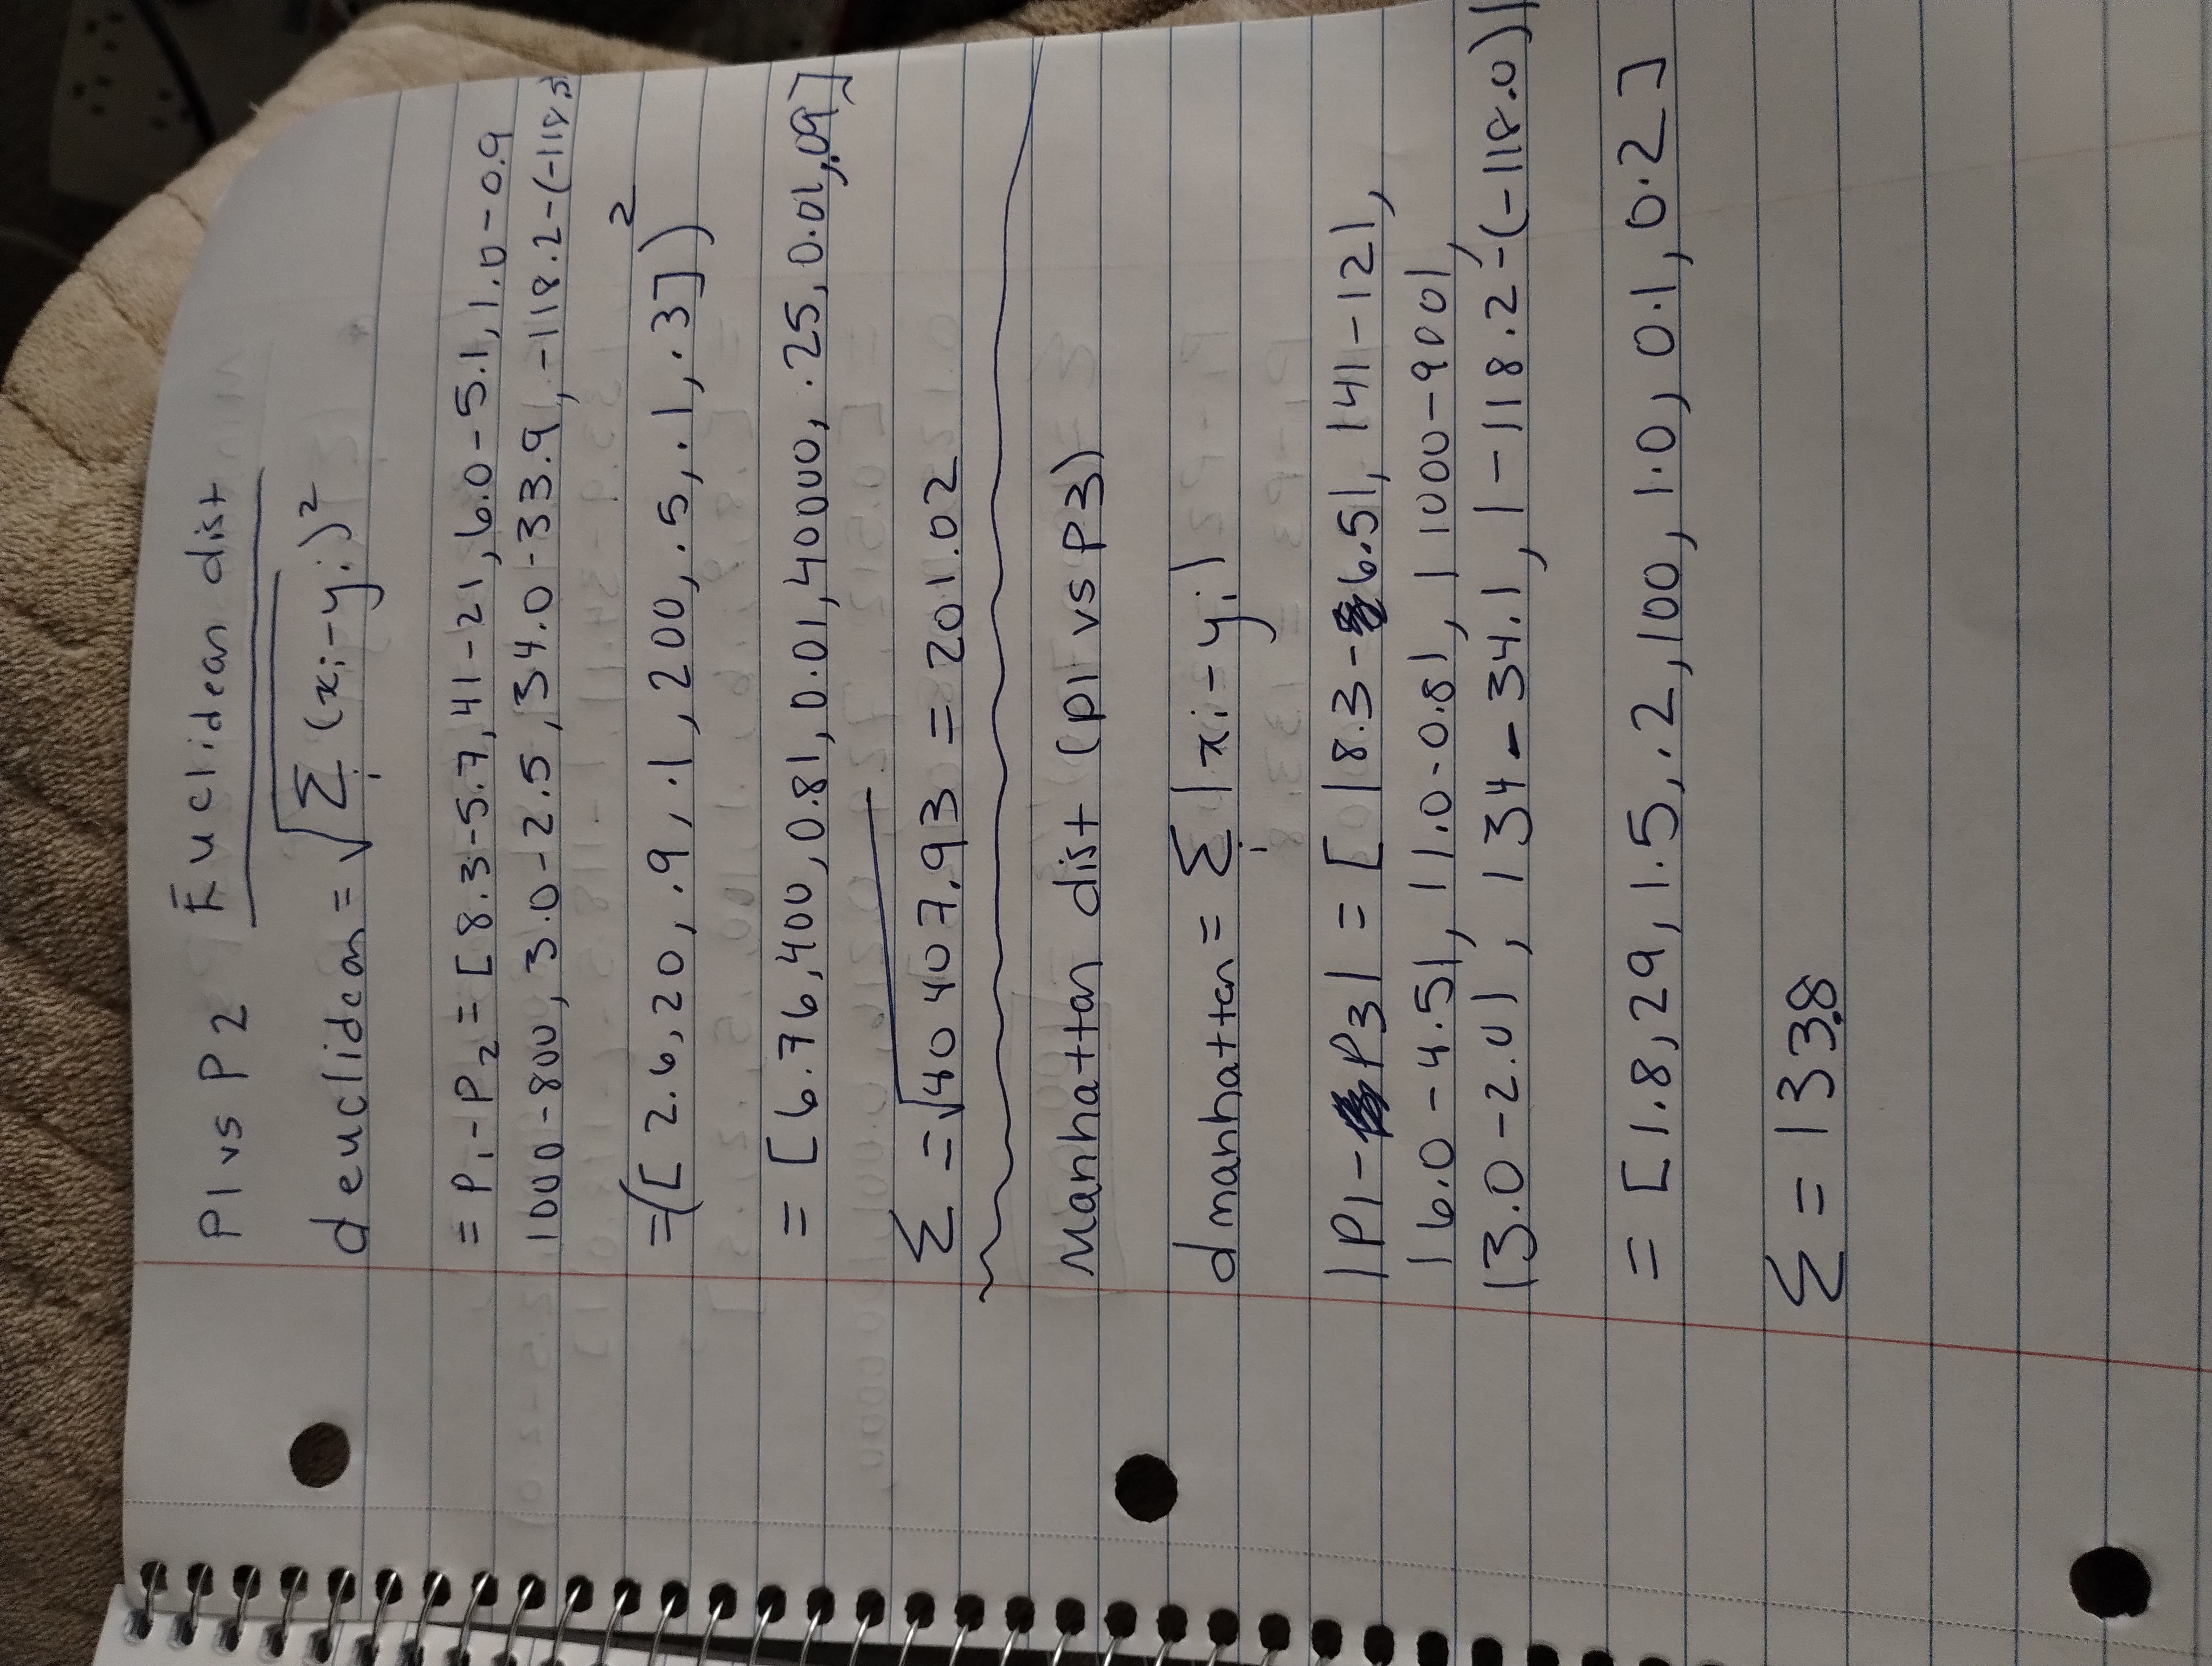 P1 vs P2 Euclidean dist
d euclidean = √Σi (xi-yi)²
= P1-P2 = [8.3-5.7, 41-21, 6.0-5.1, 1.0-0.9
1000-800, 3.0-2.5, 34.0-33.9, -118.2-(-118.5)
=([2.6, 20, .9, .1, 200, .5, .1, .3])²
= [6.76, 400, 0.81, 0.01, 40000, .25, 0.01, .09]
Σ = √40407.93 = 201.02
Manhattan dist (P1 vs P3)
d manhattan = Σi |xi-yi|
|P1-P3| = [ |8.3-6.5|, |41-12|,
|6.0-4.5|, |1.0-0.8|, |1000-900|,
|3.0-2.0|, |34-34.1|, |-118.2-(-118.0)|
= [1.8, 29, 1.5, .2, 100, 1.0, 0.1, 0.2]
Σ = 133.8